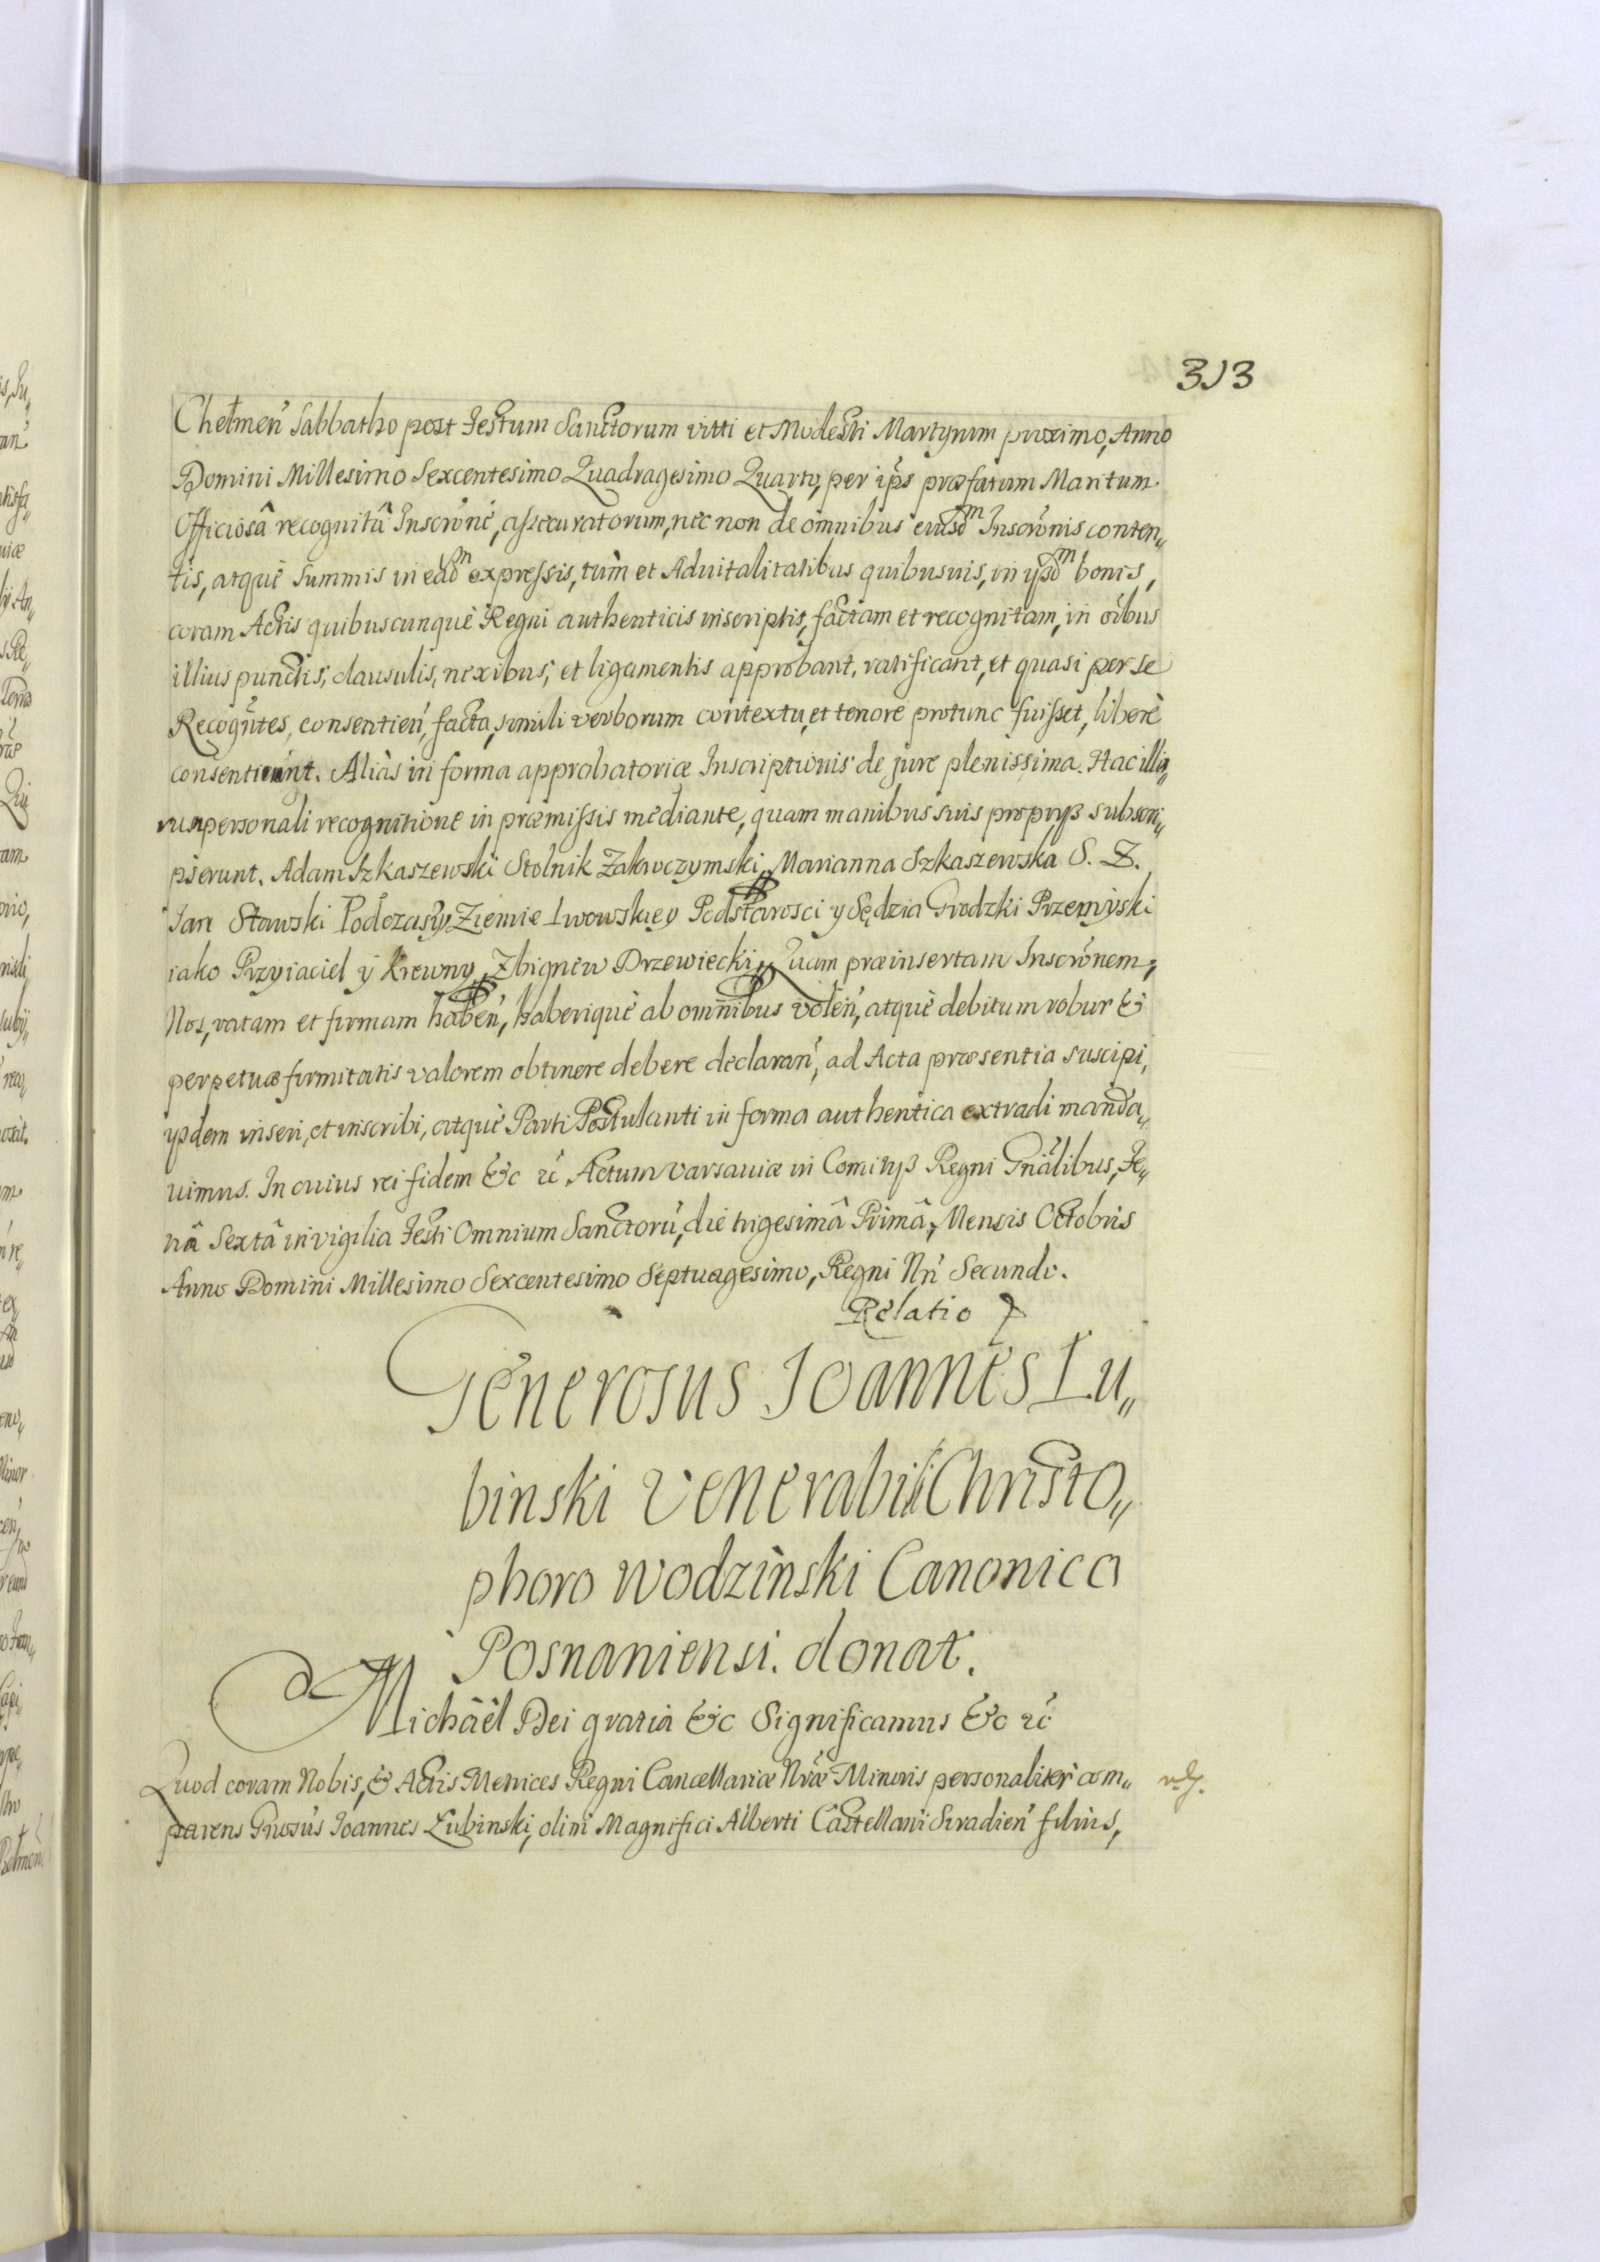 313
Chełmeń Sabbatho post Festum Sanctorum Vitti et Modesti Martyrum proximo, Anno
Domini Millesimo Sexcentesimo Quadragesimo Quarto, per ip̃s præfatum Maritum
Officiosâ recognitâ Inscr̃onẽ, assecuratorum, nec non de omnibus eiusdm Inscrõnis conten„
tis, atquè summis in eadm expressis, tùm et Aduitalitatibus quibusuis, in ysdm bonis,
coram Actis quibuscunquè Regni authenticis inscriptis, factam et recognitam, in oĩbus
illius punctis, clausulis, nexibus, et ligamentis approbant, ratificant, et quasi per se
Recogñtes, consentień, facta, simili verborum contextu, et tenore protunc fuisset, liberè
consentiunt. Aliàs in forma approbatoriæ Inscriptionis de jure plenissima. Hac illo„
rum personali recognitione in præmissis mediante, quam manibus suis proprijs subscri„
pserunt. Adam Szkaszewski Stolnik Zakroczymski, Marianna Szkaszewska S. Z.
Jan Stawski Podczaszy Ziemie Lwowskiey Podstarosci y Sędzia Grodzki Przemyski
iako Przyiaciel ÿ Krewny, Zbigniew Drzewiecki, Quam præinsertam Inscrõnem,
Nos, ratam et firmam habeń, haberiquè ab omnibus voleń, atquè debitum robur &
perpetuæ firmitatis valorem obtinere debere declarań, ad Acta præsentia suscipi,
ysdem inseri, et inscribi, atquè Parti Postulanti in forma authentica extradi manda„
uimus. In cuius rei fidem &c ꝛc̃ Actum Varsauiæ in Comitijs Regni Gñalibus, Fe„
riâ Sextâ in vigilia Festi Omnium Sanctorũ, die trigesimâ Primâ, Mensis Octobris
Anno Domini Millesimo Sexcentesimo Septuagesimo, Regni Nr̃i Secundo.
Relatio
Generosus Joannes Lu„
binski Venerabili Christo„
phoro Wodzinski Canonico
Posnaniensi. donat.
Michäel Dei gratia &c Significamus &c ꝛc̃
Quod coram Nobis, & Actis Metrices Regni Cancellariæ Nr̃æ Minoris personaliter com„
parens Gñosus Joannes Łubinski, olim Magnifici Alberti Castellani Siradień filius,